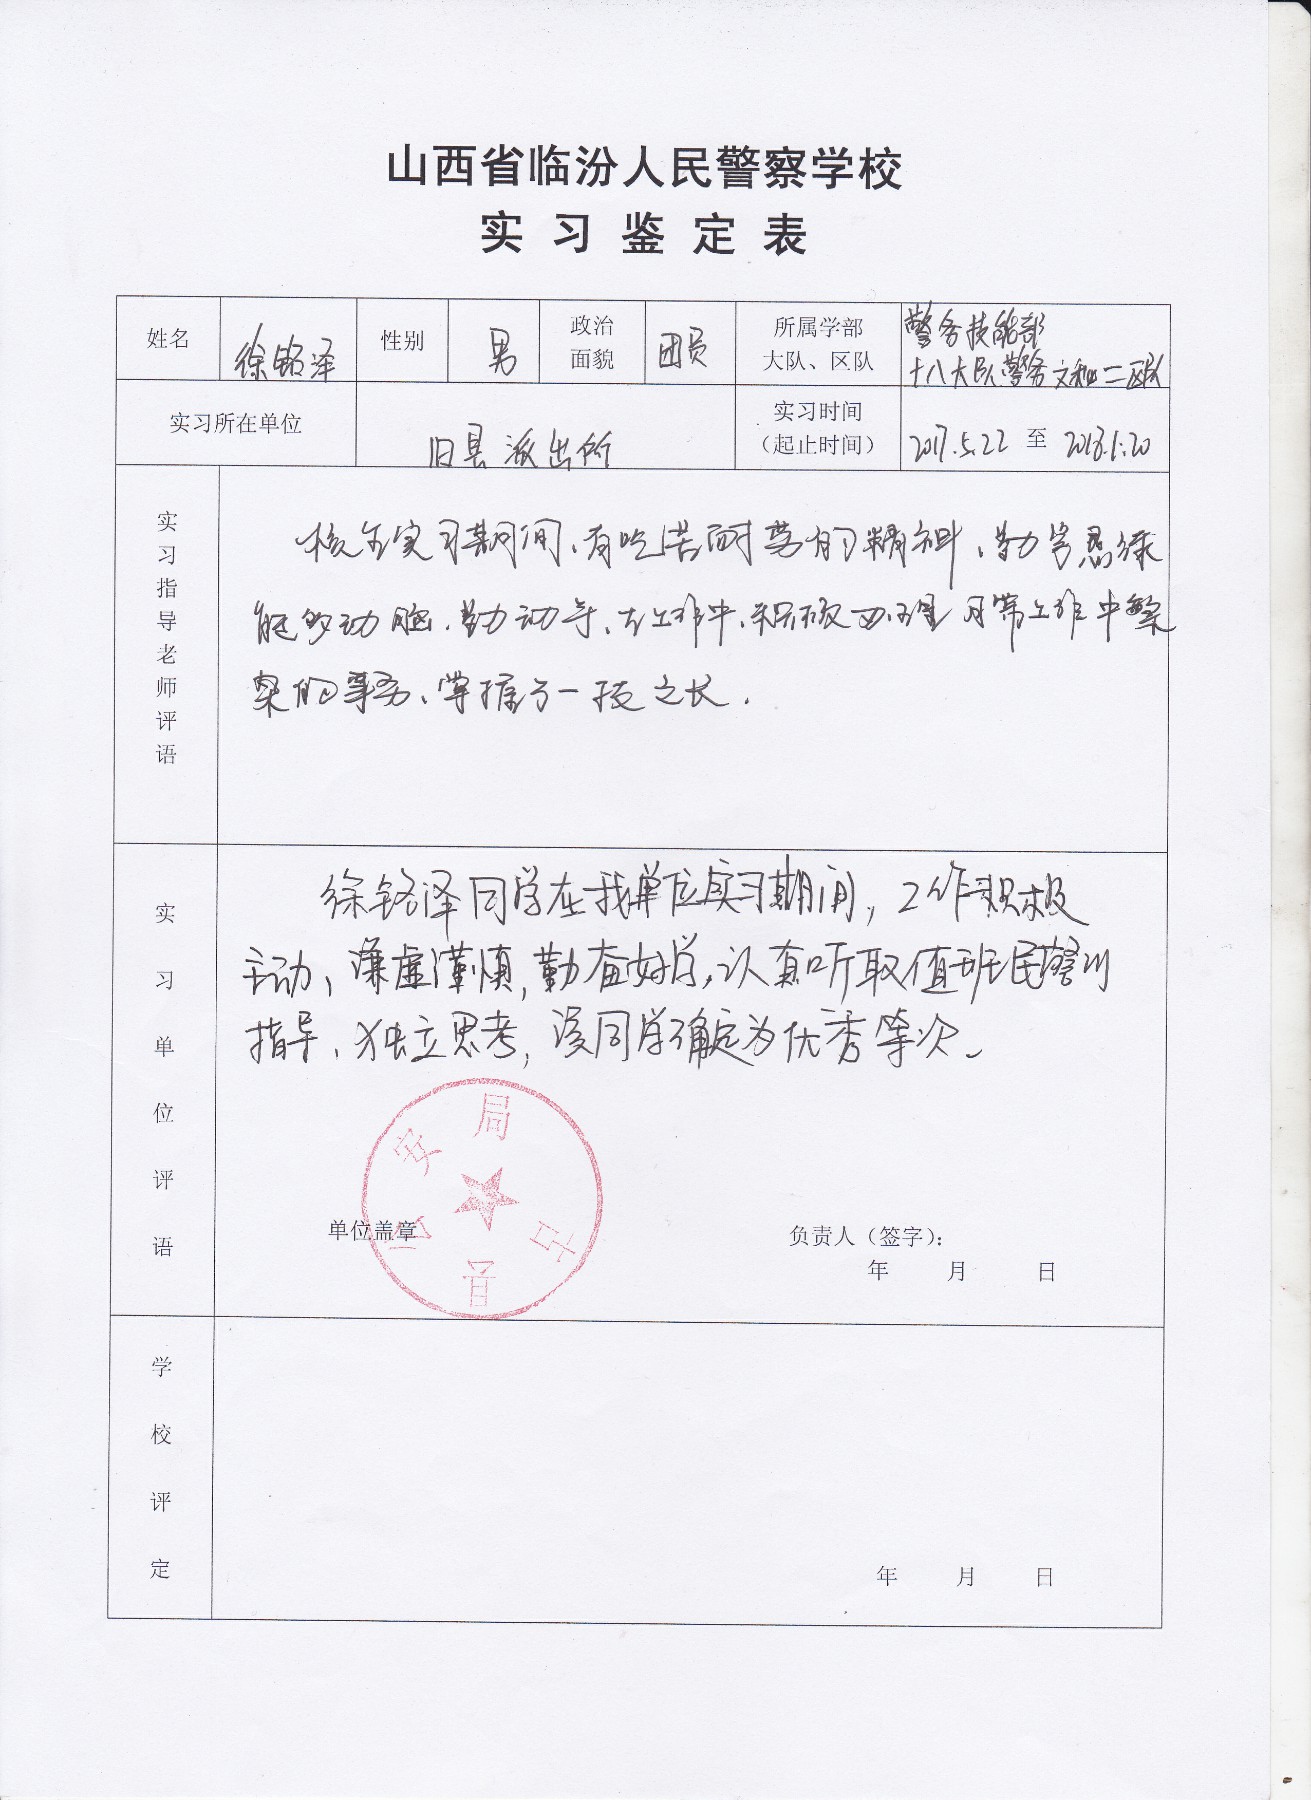 山西省临汾人民警察学校
实习鉴定表
姓名 徐铭泽 性别 男 政治面貌 团员 所属学部大队、区队 警务技能部
十八大队警务文秘二区队
实习所在单位 旧县派出所 实习时间(起止时间) 2017.5.22 至 2018.1.20
实习指导老师评语
该生实习期间、有吃苦耐劳的精神、勤学恳练
能够动脑、勤动手、在工作中、积极办理日常工作中繁
杂的事务、掌握了一技之长.
实习单位评语
徐铭泽同学在我单位实习期间,工作积极
主动、谦虚谨慎,勤奋好学,认真听取值班民警
指导、独立思考,该同学确定为优秀等次。
公安局
单位盖章
负责人(签字):
年 月 日
学校评定
年 月 日